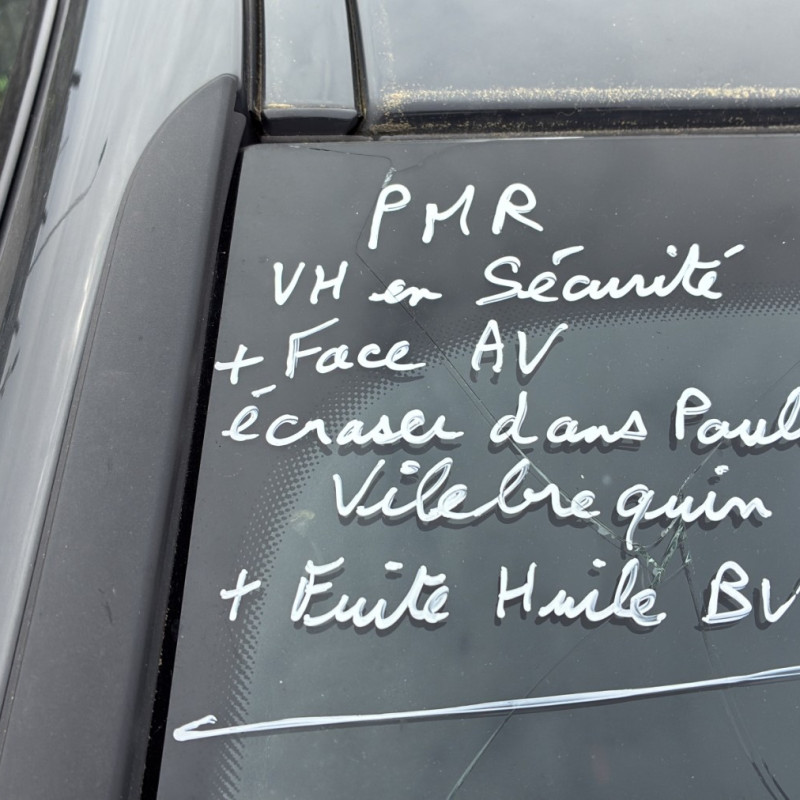 PMR
VH en Sécurité
+ Face AV
écraser dans Poul
Vilebrequin
+ Fuite Huile BV